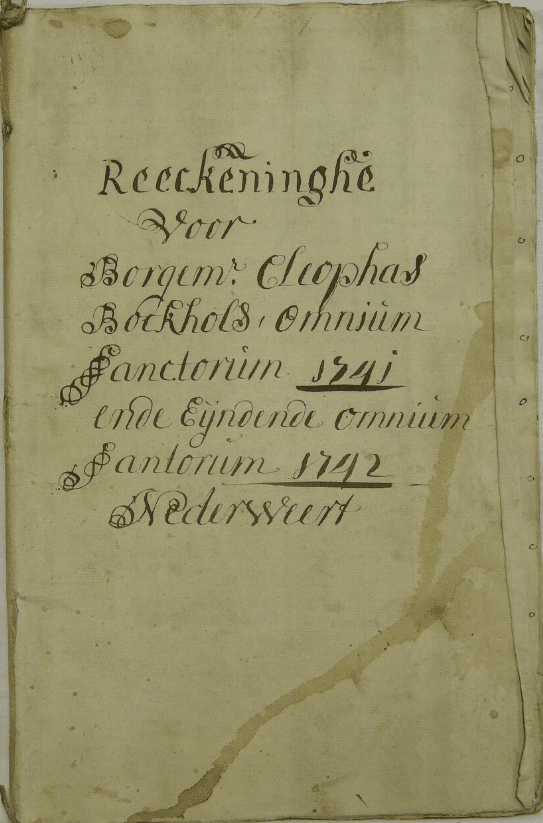 Reeckeninghe
Voor
Borgemr. Cleophas
Bockhols, omnium
Sanctorum 1741
ende Eÿndende omnium
Santorum 1742
Nederweert